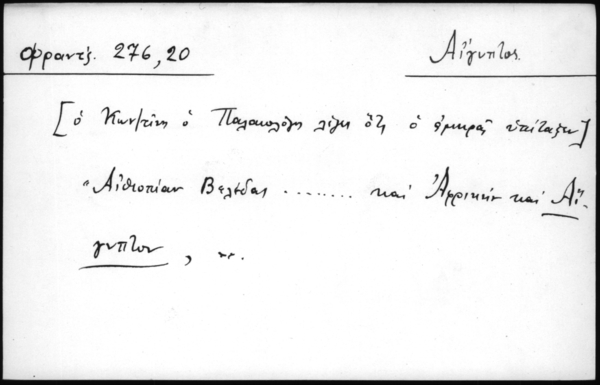 Φραντζ. 276,20
Αἴγυπτος
[ὁ Κων/τῖνος ὁ Παλαιολόγος λέγει ὅτι ὁ ἀμηρᾶς ὑπέταξεν]
"Αἰθιοπίαν Βελέδας ........ καὶ Ἀφρικὴν καὶ Αἴ-
γυπτον, κτ.